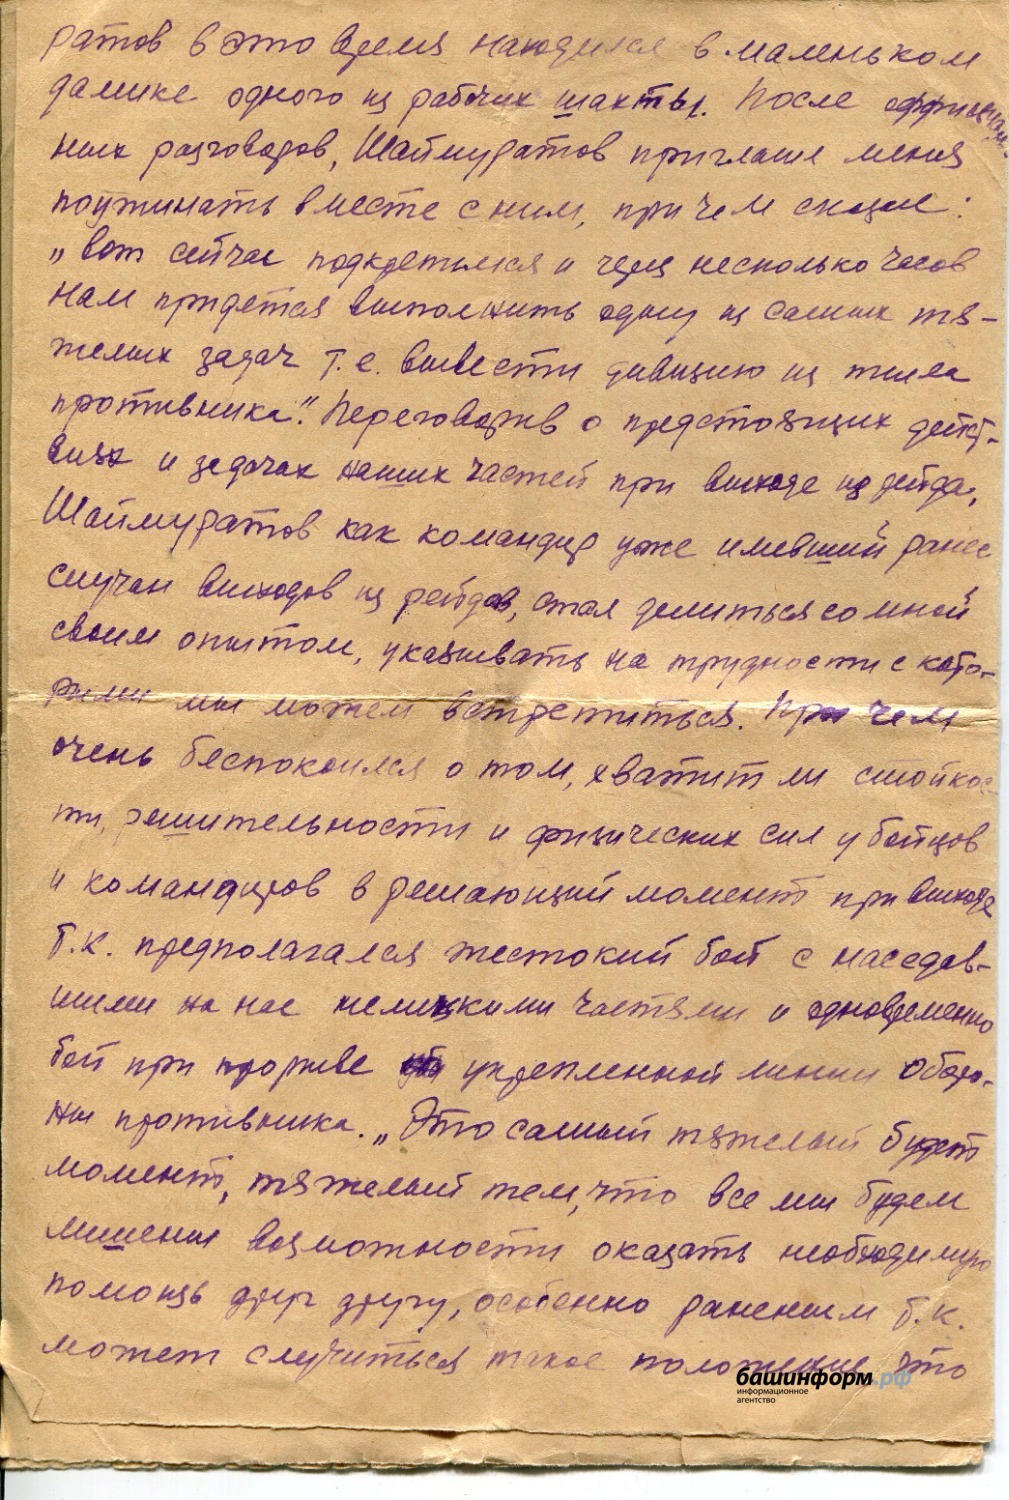 ратов в это время находился в маленьком
дамике одного из рабочих шахты. После оффициаль-
ных разговоров, Шаймуратов приглашо меня
поужинать вместе с ним, при чем сказал:
„вот сейчас подкрепимся и через несколько часов
нам придется выполнить одну из самых тя-
желых задач т.е. вывести дивизию из тыла
противника." Переговорив о предстоящих дейст-
виях и задачах наших частей при выходе из рейда,
Шаймуратов как командир уже имевший ранее
случаи выходов из рейдов, стал делиться со мной
своим опытом, указывать на трудности с кото-
рыми мы можем встретиться. При чем
очень беспокоился о том, хватит ли стойкос-
ти, решительности и физических сил у бойцов
и командиров в решающий момент при выходе
т.к. предполагался жестокий бой с наседав-
шими на нас немецкими частями и одновременно
бой при прорыве укрепленной линии оборо-
ны противника. „Это самый тяжелый будет
момент, тяжелый тем, что все мы будем
лишены возможности оказать необходимую
помощь друг другу, особенно раненым т.к.
может случиться такое положение, что
башинформ.рф
информационное
агентство